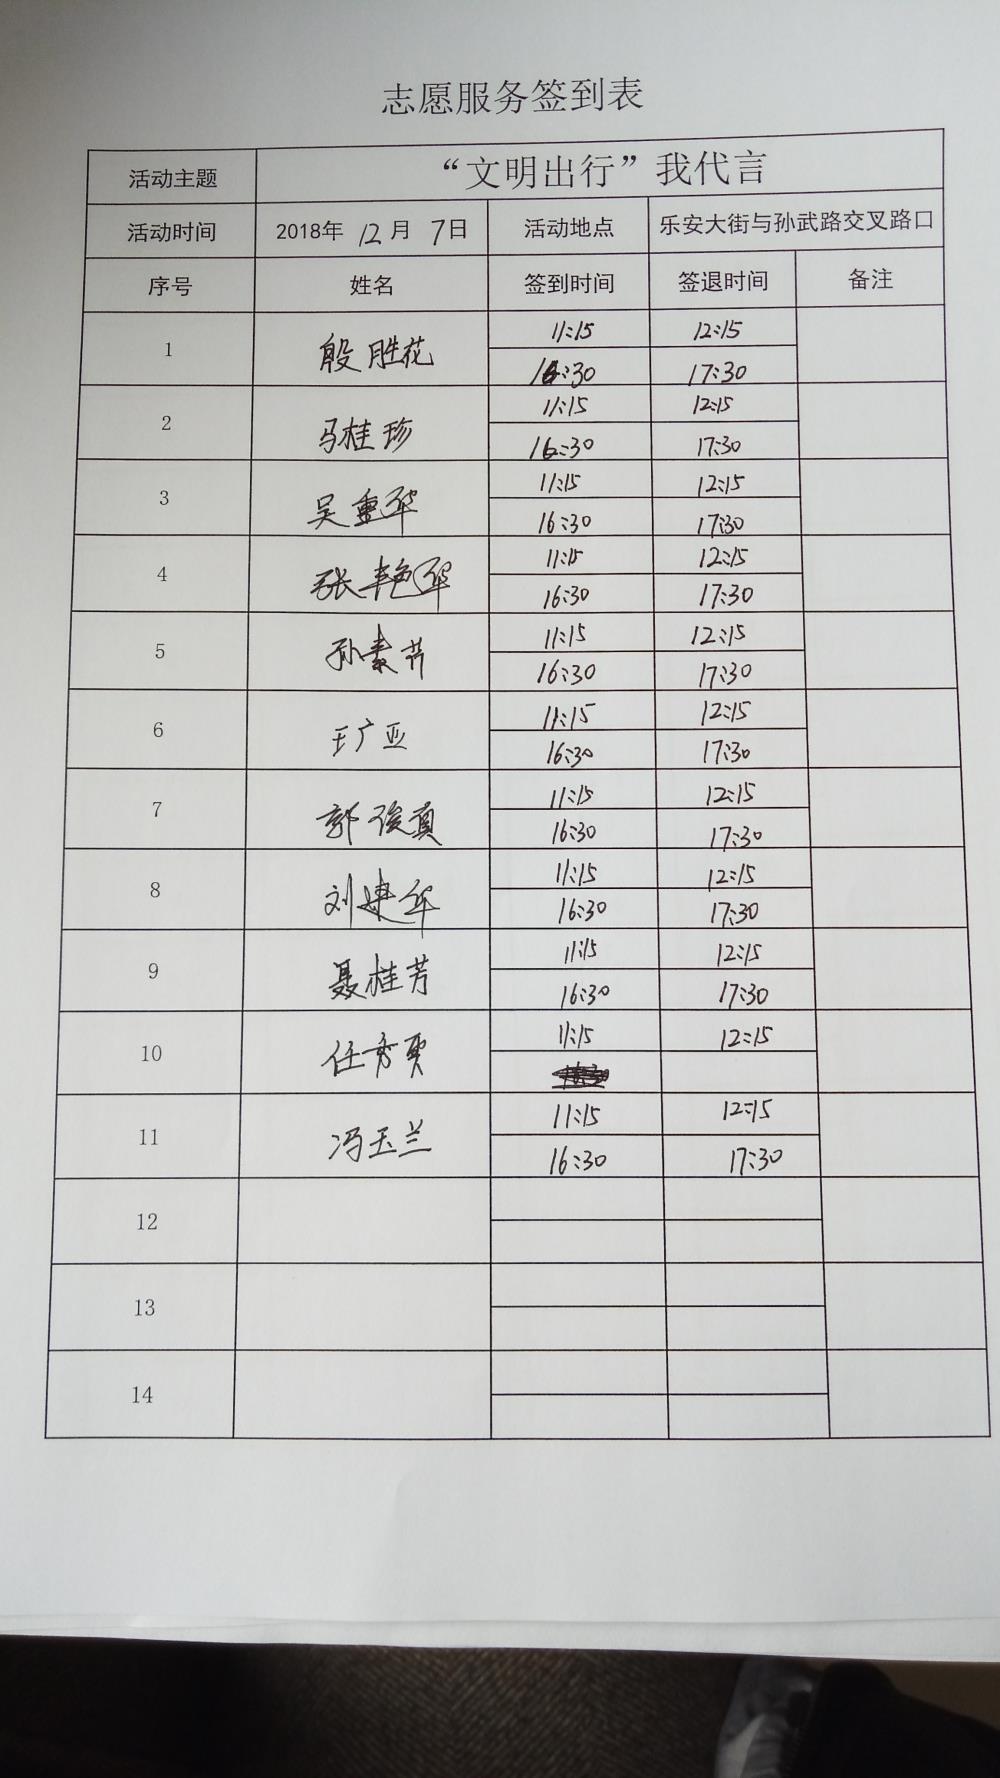 志愿服务签到表
活动主题 “文明出行”我代言
活动时间 2018年 12月 7日 活动地点 乐安大街与孙武路交叉路口
序号 姓名 签到时间 签退时间 备注
1 殷胜花 11:15 12:15
16:30 17:30
2 马桂珍 11:15 12:15
16:30 17:30
3 吴重华 11:15 12:15
16:30 17:30
4 张艳华 11:15 12:15
16:30 17:30
5 孙素芳 11:15 12:15
16:30 17:30
6 王广亚 11:15 12:15
16:30 17:30
7 郭俊真 11:15 12:15
16:30 17:30
8 刘建华 11:15 12:15
16:30 17:30
9 聂桂芳 11:15 12:15
16:30 17:30
10 任秀 11:15 12:15
11 冯玉兰 11:15 12:15
16:30 17:30
12
13
14